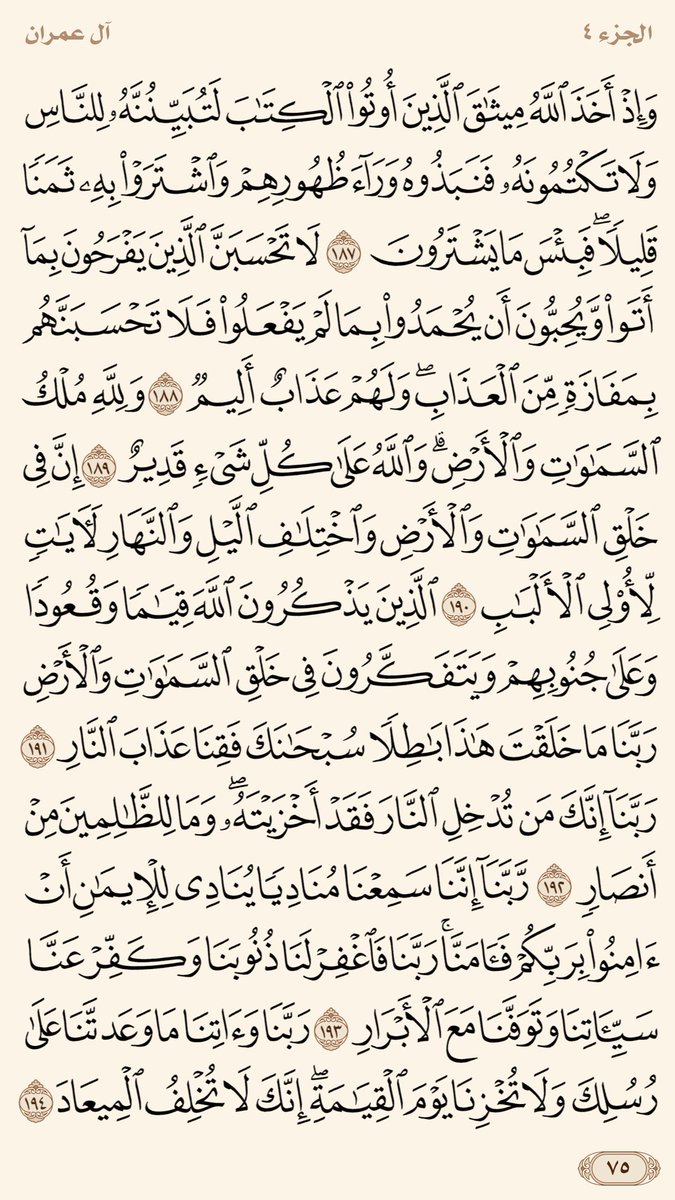 الجزء ٤
آل عمران
وَإِذۡ أَخَذَ ٱللَّهُ مِيثَٰقَ ٱلَّذِينَ أُوتُواْ ٱلۡكِتَٰبَ لَتُبَيِّنُنَّهُۥ لِلنَّاسِ
وَلَا تَكۡتُمُونَهُۥ فَنَبَذُوهُ وَرَآءَ ظُهُورِهِمۡ وَٱشۡتَرَوۡاْ بِهِۦ ثَمَنٗا
قَلِيلٗاۖ فَبِئۡسَ مَا يَشۡتَرُونَ ١٨٧ لَا تَحۡسَبَنَّ ٱلَّذِينَ يَفۡرَحُونَ بِمَآ
أَتَواْ وَّيُحِبُّونَ أَن يُحۡمَدُواْ بِمَا لَمۡ يَفۡعَلُواْ فَلَا تَحۡسَبَنَّهُم
بِمَفَازَةٖ مِّنَ ٱلۡعَذَابِۖ وَلَهُمۡ عَذَابٌ أَلِيمٞ ١٨٨ وَلِلَّهِ مُلۡكُ
ٱلسَّمَٰوَٰتِ وَٱلۡأَرۡضِۗ وَٱللَّهُ عَلَىٰ كُلِّ شَيۡءٖ قَدِيرٌ ١٨٩ إِنَّ فِي
خَلۡقِ ٱلسَّمَٰوَٰتِ وَٱلۡأَرۡضِ وَٱخۡتِلَٰفِ ٱلَّيۡلِ وَٱلنَّهَارِ لَأٓيَٰتٖ
لِّأُوْلِي ٱلۡأَلۡبَٰبِ ١٩٠ ٱلَّذِينَ يَذۡكُرُونَ ٱللَّهَ قِيَٰمٗا وَقُعُودٗا
وَعَلَىٰ جُنُوبِهِمۡ وَيَتَفَكَّرُونَ فِي خَلۡقِ ٱلسَّمَٰوَٰتِ وَٱلۡأَرۡضِ
رَبَّنَا مَا خَلَقۡتَ هَٰذَا بَٰطِلٗا سُبۡحَٰنَكَ فَقِنَا عَذَابَ ٱلنَّارِ ١٩١
رَبَّنَآ إِنَّكَ مَن تُدۡخِلِ ٱلنَّارَ فَقَدۡ أَخۡزَيۡتَهُۥۖ وَمَا لِلظَّٰلِمِينَ مِنۡ
أَنصَارٖ ١٩٢ رَّبَّنَآ إِنَّنَا سَمِعۡنَا مُنَادِيٗا يُنَادِي لِلۡإِيمَٰنِ أَنۡ
ءَامِنُواْ بِرَبِّكُمۡ فَـَٔامَنَّاۚ رَبَّنَا فَٱغۡفِرۡ لَنَا ذُنُوبَنَا وَكَفِّرۡ عَنَّا
سَيِّـَٔاتِنَا وَتَوَفَّنَا مَعَ ٱلۡأَبۡرَارِ ١٩٣ رَبَّنَا وَءَاتِنَا مَا وَعَدتَّنَا عَلَىٰ
رُسُلِكَ وَلَا تُخۡزِنَا يَوۡمَ ٱلۡقِيَٰمَةِۖ إِنَّكَ لَا تُخۡلِفُ ٱلۡمِيعَادَ ١٩٤
٧٥